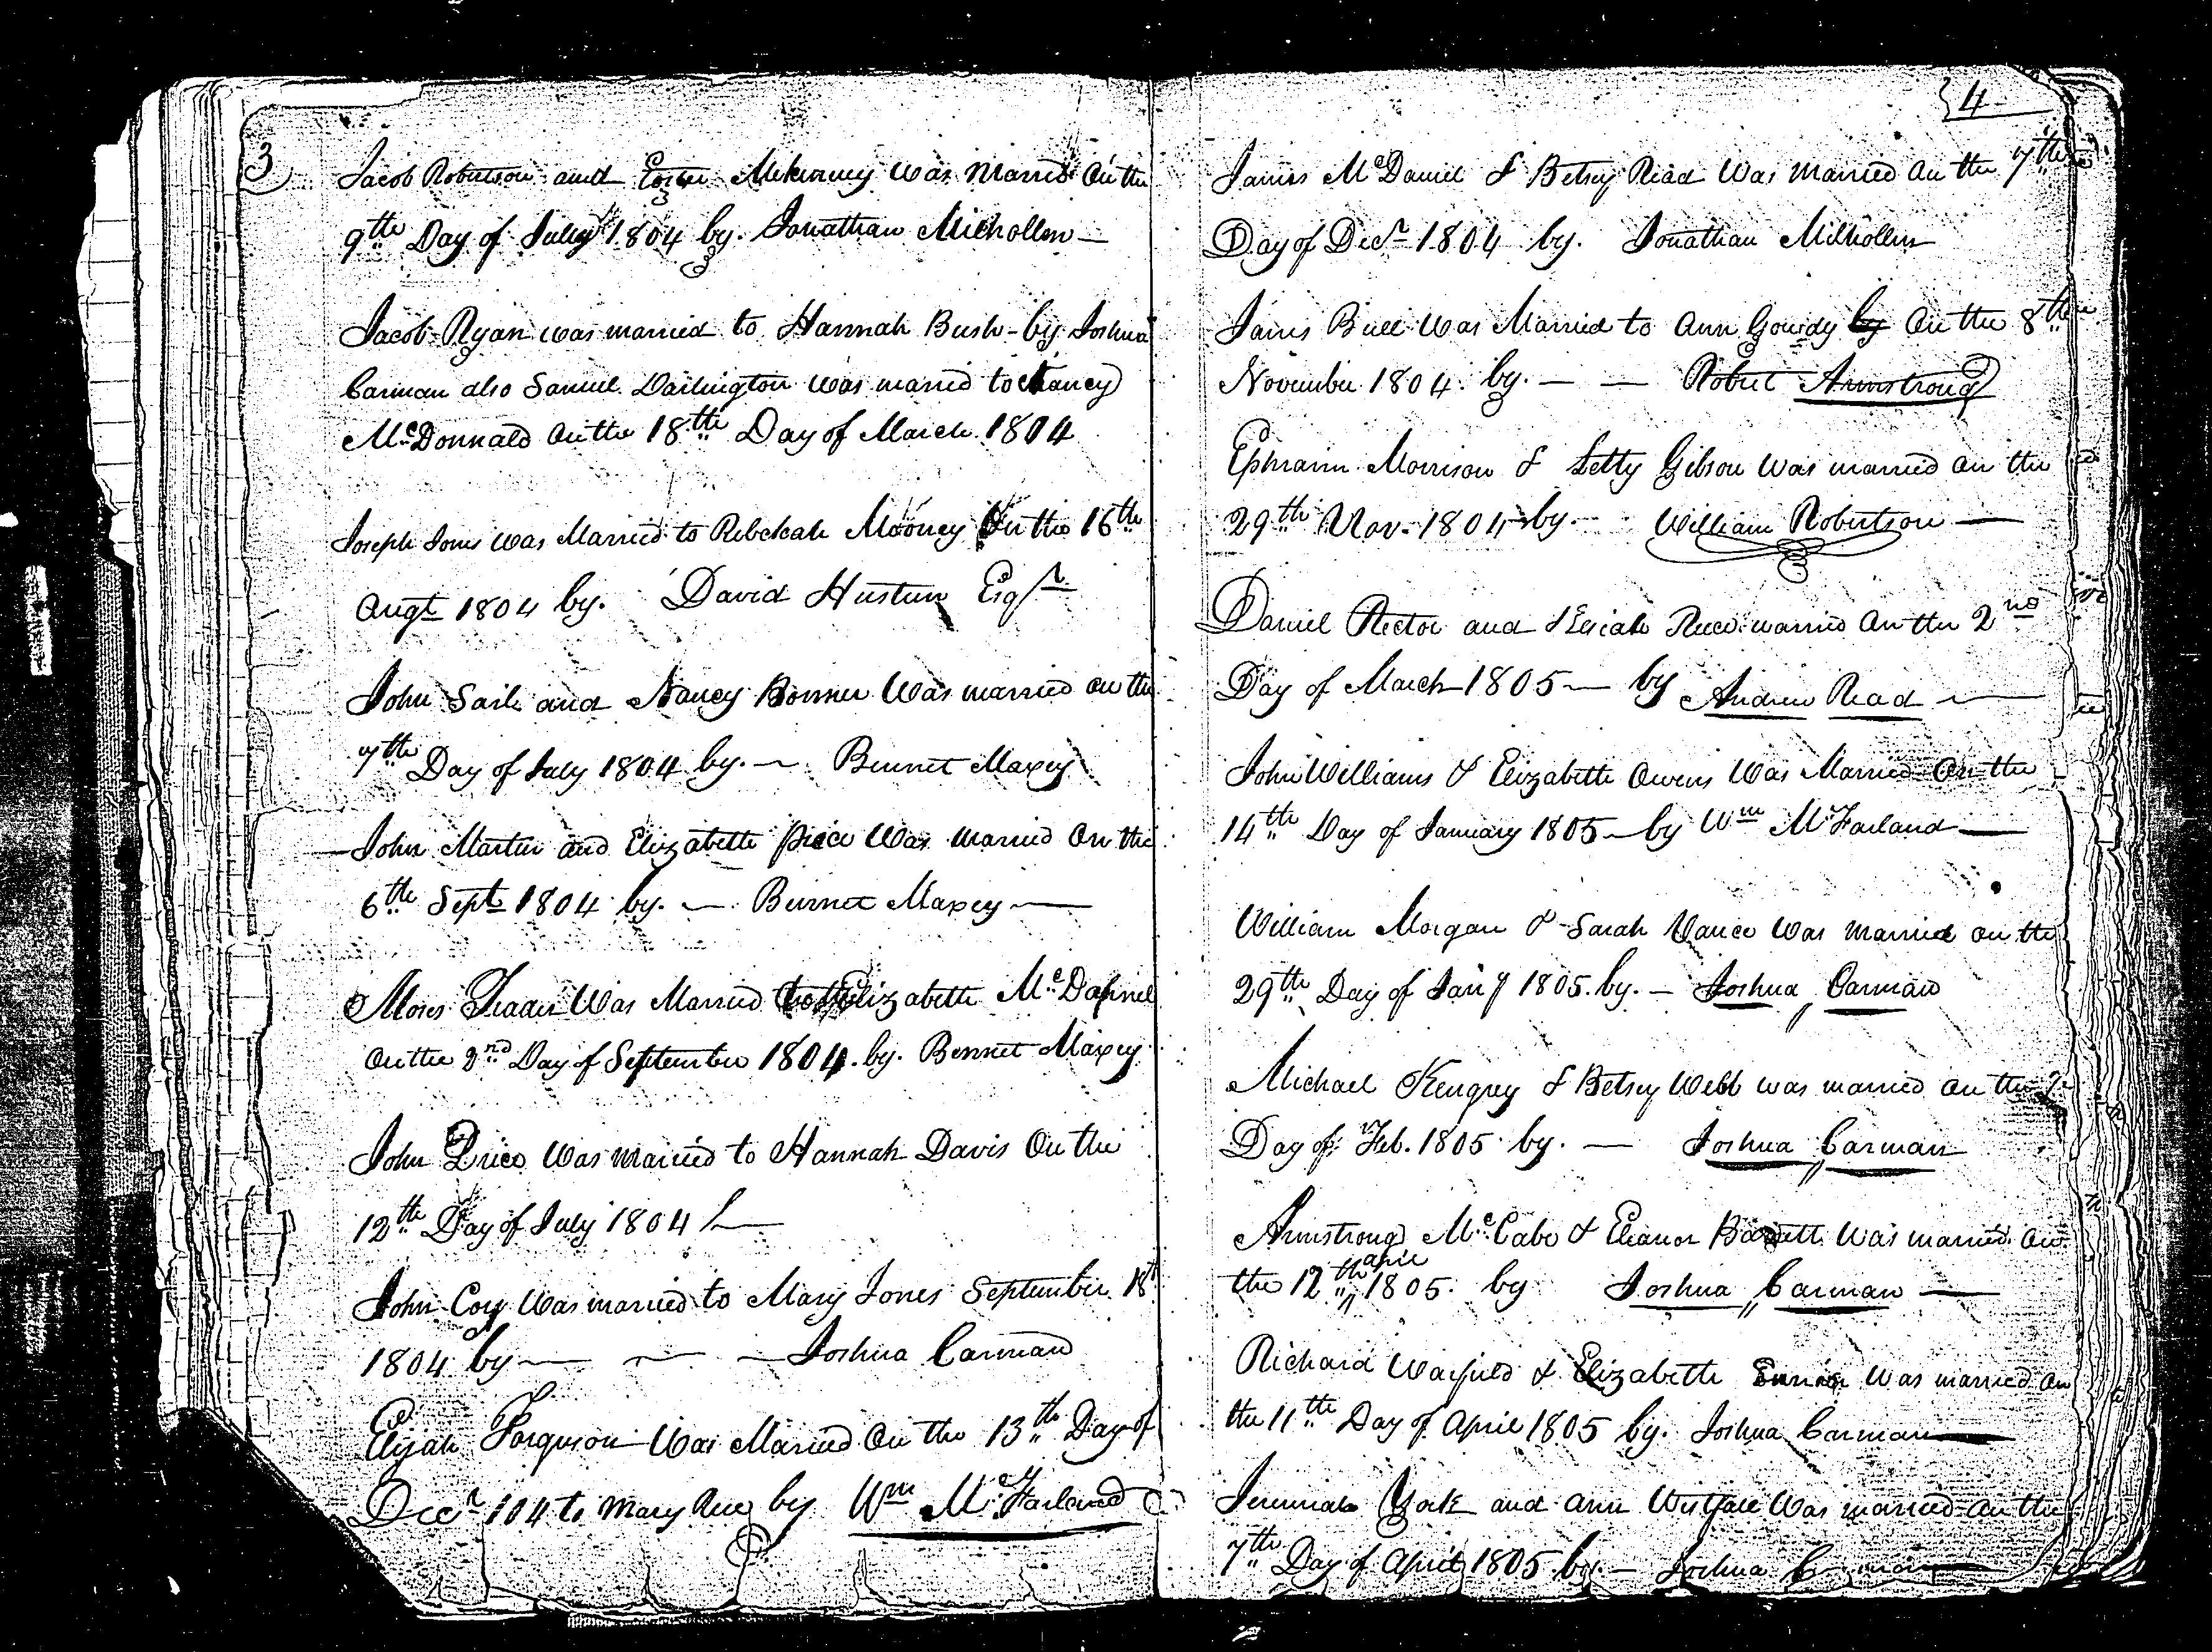 3
Jacob Robertson and Mckinney was Married on the
9th Day of July 1804 by. Jonathan Milhollen —
Jacob Ryan was married to Hannah Bush - by Joshua
Carman also Samuel Darlington was maried to Nancy
McDonnald on the 18th Day of March 1804
Joseph Jones was Married to Rebekah Mooney On the 16th
Augt 1804 by. David Huston Esqr
John Sails and Nancy Bonner Was married on the
7th Day of July 1804 by. — Bennet Maxey
John Martin and Elizabeth price Was married On the
6th Sept 1804 by. — Bennet Maxey —
Moses Trader Was Married to Elizabeth McDaniel
on the 2nd Day of September 1804. by. Bennet Maxey
John Price Was married to Hannah Davis On the
12th Day of July 1804
John Coy Was married to Mary Jones September 18th
1804 by — — — Joshua Carman
Elijah Forguson Was Married On the 13th Day of
Decr 104 to Mary by Wm McFarland
4
James McDaniel & Betsey Read Was married on the 7th
Day of Decr 1804 by. Jonathan Milhollen
James Bull Was Married to Ann Gowdy by On the 8th
November 1804 by. — — Robert Armstrong
Ephraim Morrison & Letty Gibson Was married on the
29th Nov. 1804 by. William Robertson —
Daniel Rector and Kesiah married on the 2nd
Day of March 1805 — by Andrew Read —
John Williams & Elizabeth Owens Was Married On the
14th Day of January 1805 — by Wm McFarland —
William Morgan & Sarah Vance Was married on the
29th Day of Jany 1805. by. — Joshua Carman
Michael Kengrey & Betsey Webb was married on the
Day of Feb. 1805 by. — Joshua Carman
Armstrong McCabe & Eleanor Barrett Was married on
the 12th april 1805. by Joshua Carman —
Richard Warfield & Elizabeth Was married on
the 11th Day of April 1805 by. Joshua Carman
Jeremiah York and Ann Westfall Was married on the
7th Day of April 1805 by. — Joshua Carman